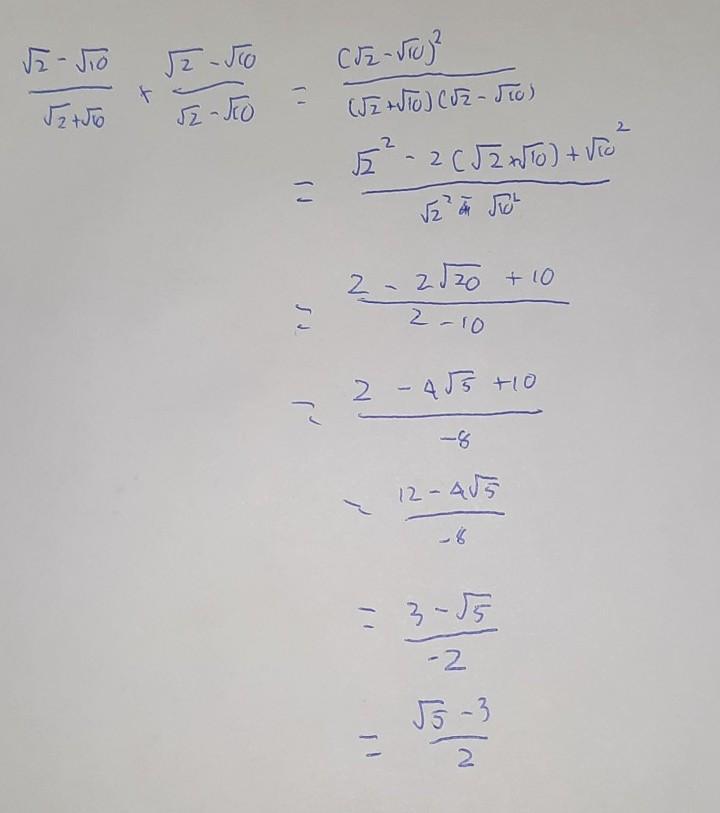 (√2 - √10)/(√2 + √10) × (√2 - √10)/(√2 - √10) = (√2 - √10)²/((√2 + √10)(√2 - √10))
= (√2² - 2(√2 × √10) + √10²)/(√2² - √10²)
= (2 - 2√20 + 10)/(2 - 10)
= (2 - 4√5 + 10)/(-8)
= (12 - 4√5)/(-8)
= (3 - √5)/(-2)
= (√5 - 3)/2